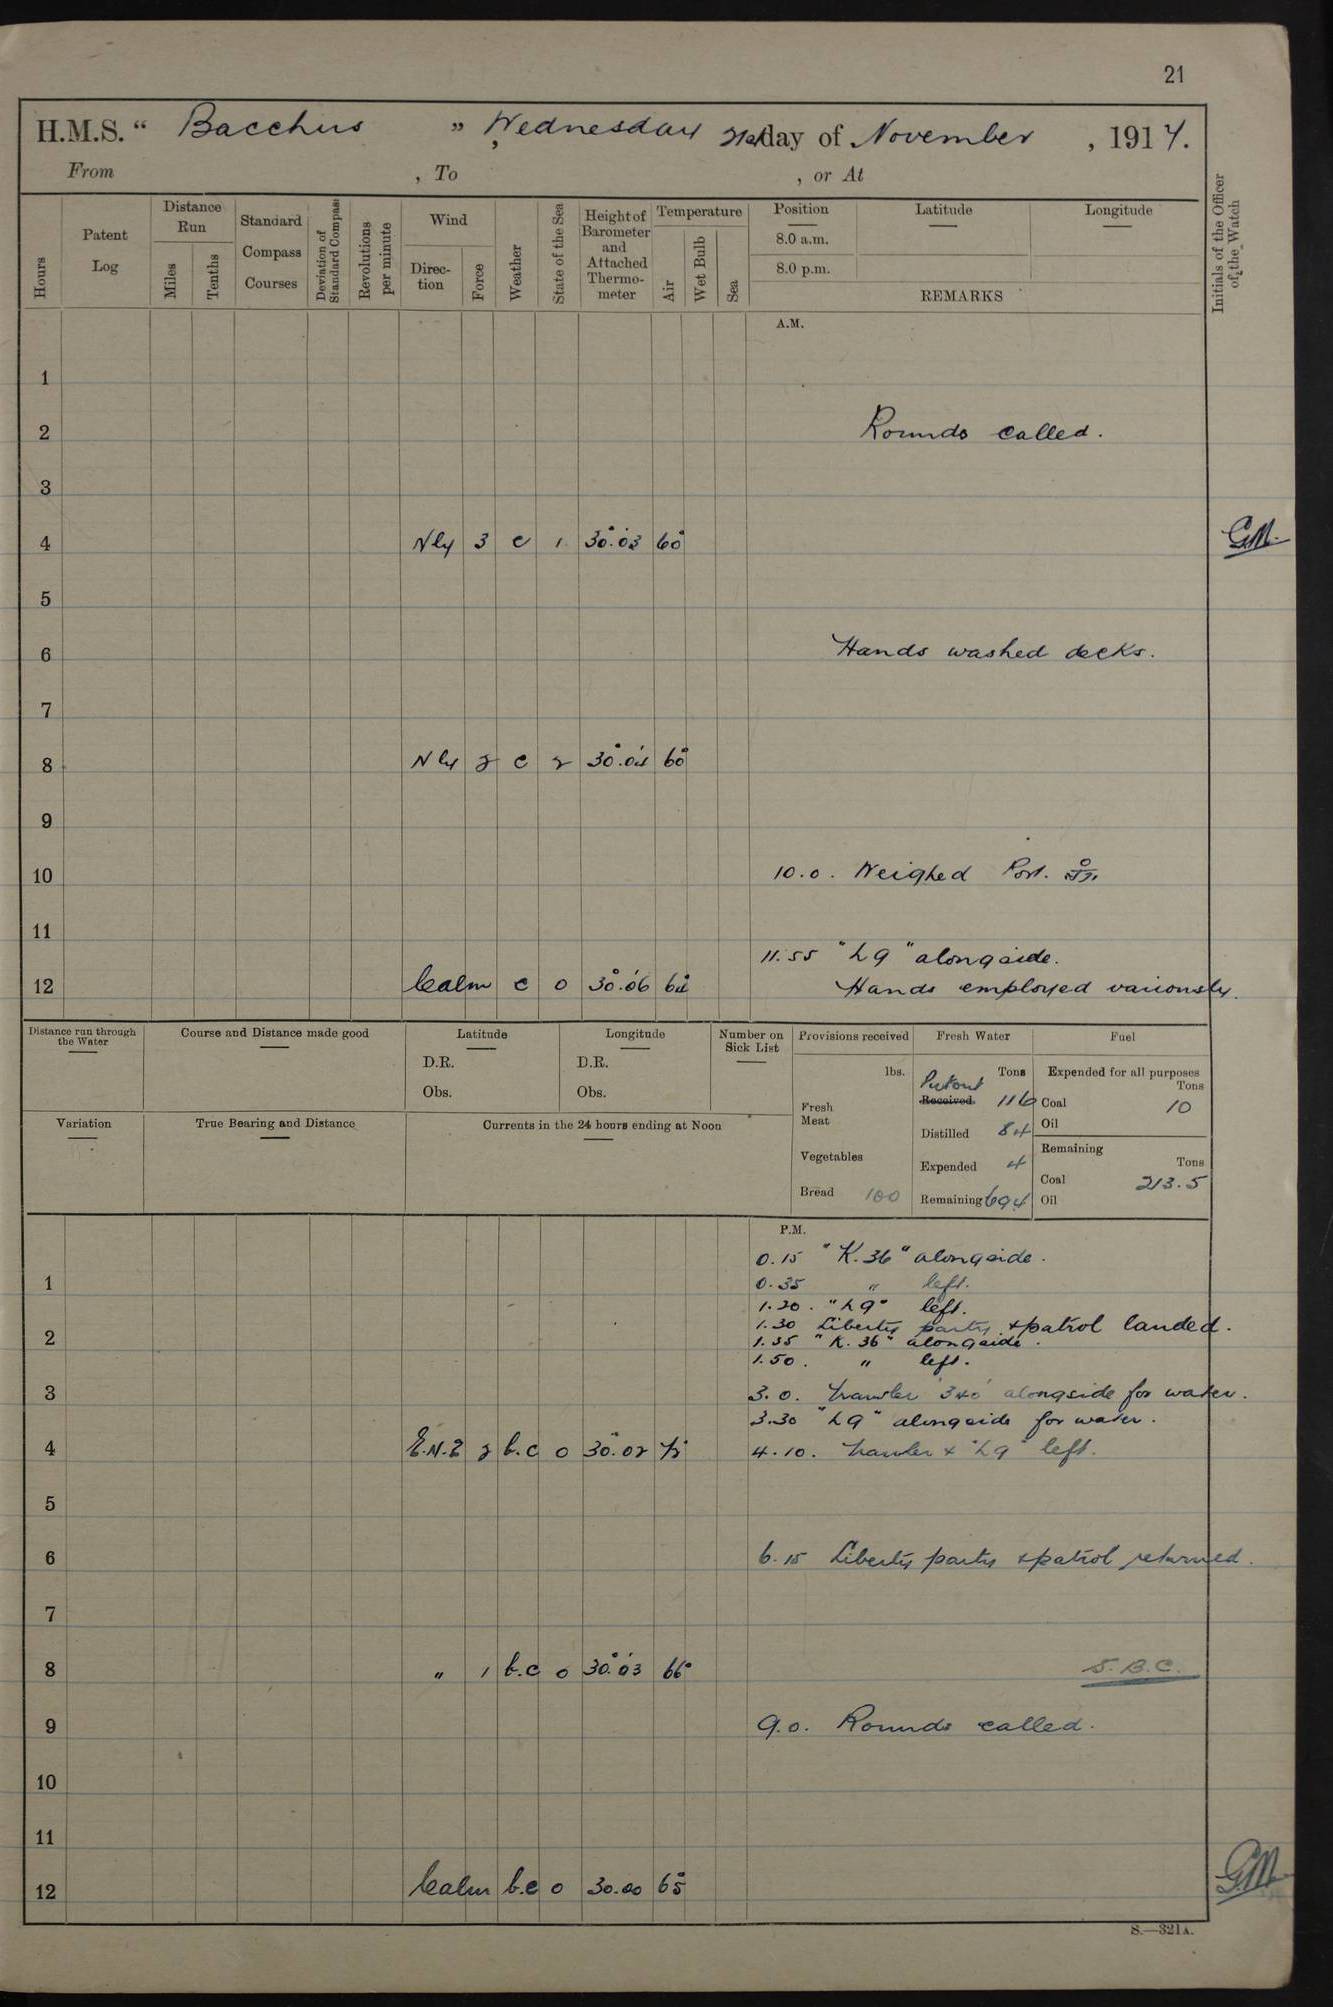 21
H.M.S. " Bacchus " , Wednesday 21st day of November , 1917.
From , To , or At
Hours
Patent Log
Distance Run
Miles
Tenths
Standard Compass Courses
Deviation of Standard Compass
Revolutions per minute
Wind
Direc-tion
Force
Weather
State of the Sea
Height of Barometer and Attached Thermo-meter
Temperature
Air
Wet Bulb
Sea
Position
8.0 a.m.
8.0 p.m.
Latitude
Longitude
REMARKS
Initials of the Officer of the Watch
A.M.
1
2 Rounds called.
3
4 Nly 3 c 1 30.03 60° G.M.
5
6 Hands washed decks.
7
8 Nly 2 c 2 30.04 60°
9
10 10.0. Weighed Port.
11
11.55 "L9" alongside.
12 Calm c 0 30.06 64 Hands employed variously.
Distance run through the Water
Course and Distance made good
Latitude
D.R.
Obs.
Longitude
D.R.
Obs.
Number on Sick List
Provisions received
lbs.
Fresh Meat
Vegetables
Bread 100
Fresh Water
Tons
Put out
Received 116
Distilled 84
Expended 4
Remaining 694
Fuel
Expended for all purposes
Tons
Coal 10
Oil
Remaining
Tons
Coal 213.5
Oil
Variation
True Bearing and Distance
Currents in the 24 hours ending at Noon
P.M.
0.15 "K.36" alongside.
1 0.35 " left.
1.20. "L9" left.
1.30 Liberty party & patrol landed.
2 1.35 "K.36" alongside.
1.50. " left.
3 3.0. Trawler '340' alongside for water.
3.30 "L9" alongside for water.
4 E.N.E 2 b.c 0 30.02 4.10. Trawler & "L9" left.
5
6 6.15 Liberty party & patrol returned.
7
8 " 1 b.c 0 30.03 66° S.B.C.
9 9.0. Rounds called.
10
11
12 Calm b.c 0 30.00 65° G.M.
S.—321A.